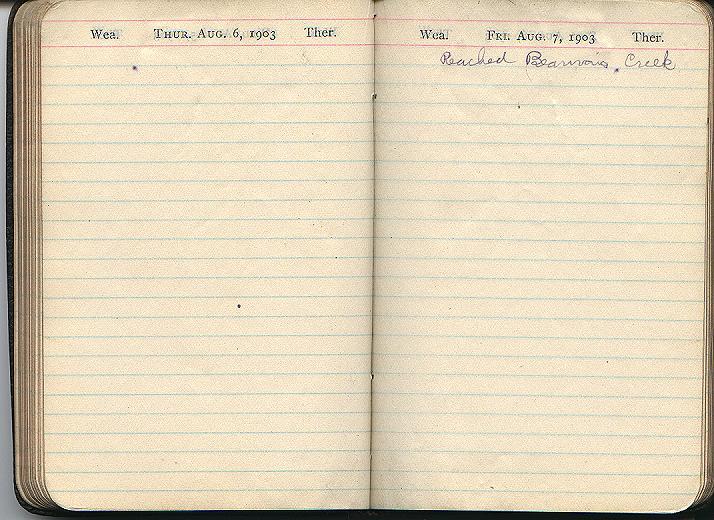 Wea. THUR. AUG. 6, 1903 Ther.
Wea. FRI. AUG. 7, 1903 Ther.
Reached Beauvais Creek